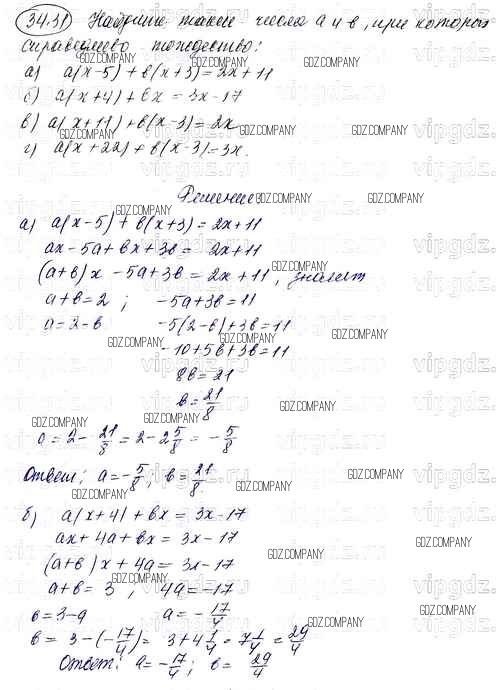 34.31 Найдите такие числа a и b, при которых
справедливо тождество:
а) a(x-5)+b(x+3)=2x+11
б) a(x+4)+bx=3x-17
в) a(x+11)+b(x-3)=2x
г) a(x+22)+b(x-3)=3x.
Решение:
а) a(x-5)+b(x+3)=2x+11
ax-5a+bx+3b=2x+11
(a+b)x-5a+3b=2x+11, значит
a+b=2; -5a+3b=11
a=2-b -5(2-b)+3b=11
-10+5b+3b=11
8b=21
b=21/8
a=2-21/8=2-2 5/8=-5/8
Ответ: a=-5/8; b=21/8
б) a(x+4)+bx=3x-17
ax+4a+bx=3x-17
(a+b)x+4a=3x-17
a+b=3, 4a=-17
b=3-a a=-17/4
b=3-(-17/4)=3+4 1/4=7 1/4=29/4
Ответ: a=-17/4; b=29/4
GDZ.COMPANY
vipgdz.ru